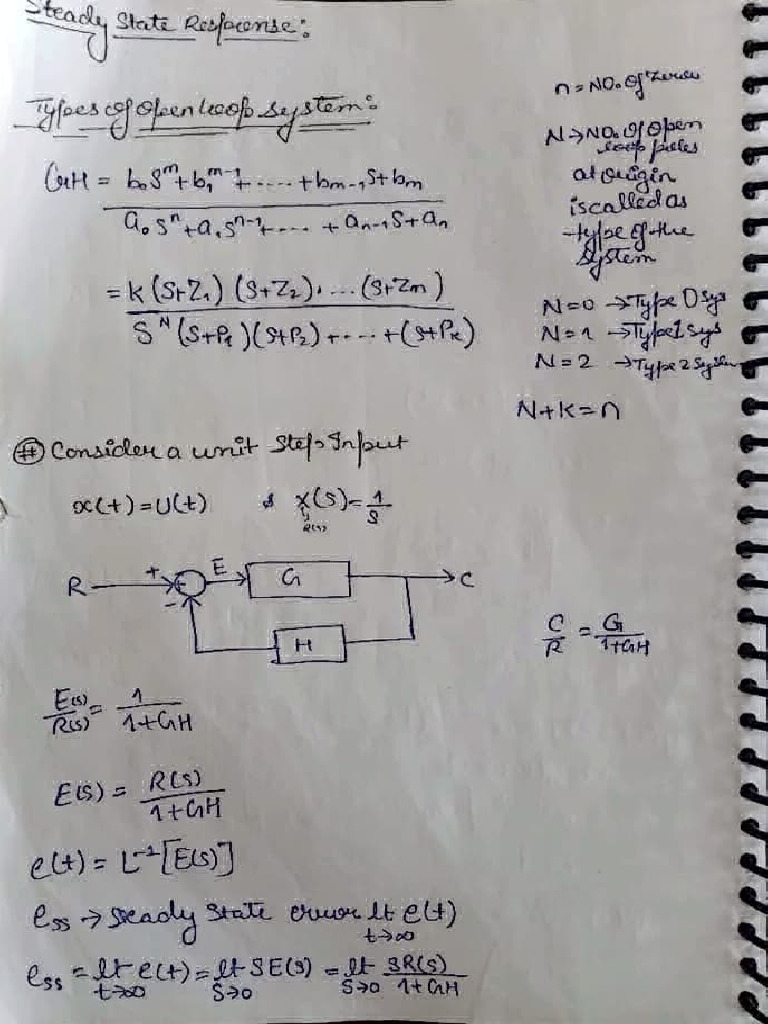 Steady State Response:
Types of open loop system:
GH = b₀S^m + b₁^m-1 + ..... + bm-1 S + bm / a₀S^n + a₁S^n-1 + .... + an-1 S + an
= K (S+Z₁) (S+Z₂) . .... (S+Zm) / S^N (S+P₁) (S+P₂) + .... + (S+Pk)
n = NO. of zeros
N → NO. of open
loop poles
at origin
is called as
type of the
system
N=0 → Type 0 Sys
N=1 → Type 1 sys
N=2 → Type 2 System
N+k=n
# Consider a unit step Input
x(t) = U(t) & X(s) = 1/S
R(s)
R + - E G C
H
C/R = G/1+GH
E(s)/R(s) = 1/1+GH
E(s) = R(s)/1+GH
e(t) = L^-1 [E(s)]
ess → steady state error lt e(t)
t→∞
ess = lt e(t) = lt SE(s) = lt SR(s)/1+GH
t→∞ S→0 S→0